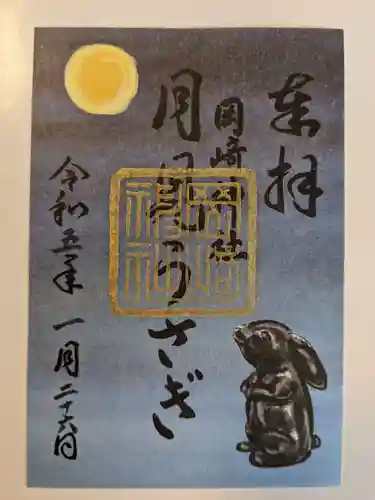 奉拝
岡崎神社
月見うさぎ
令和五年 一月二十六日
岡崎
神社